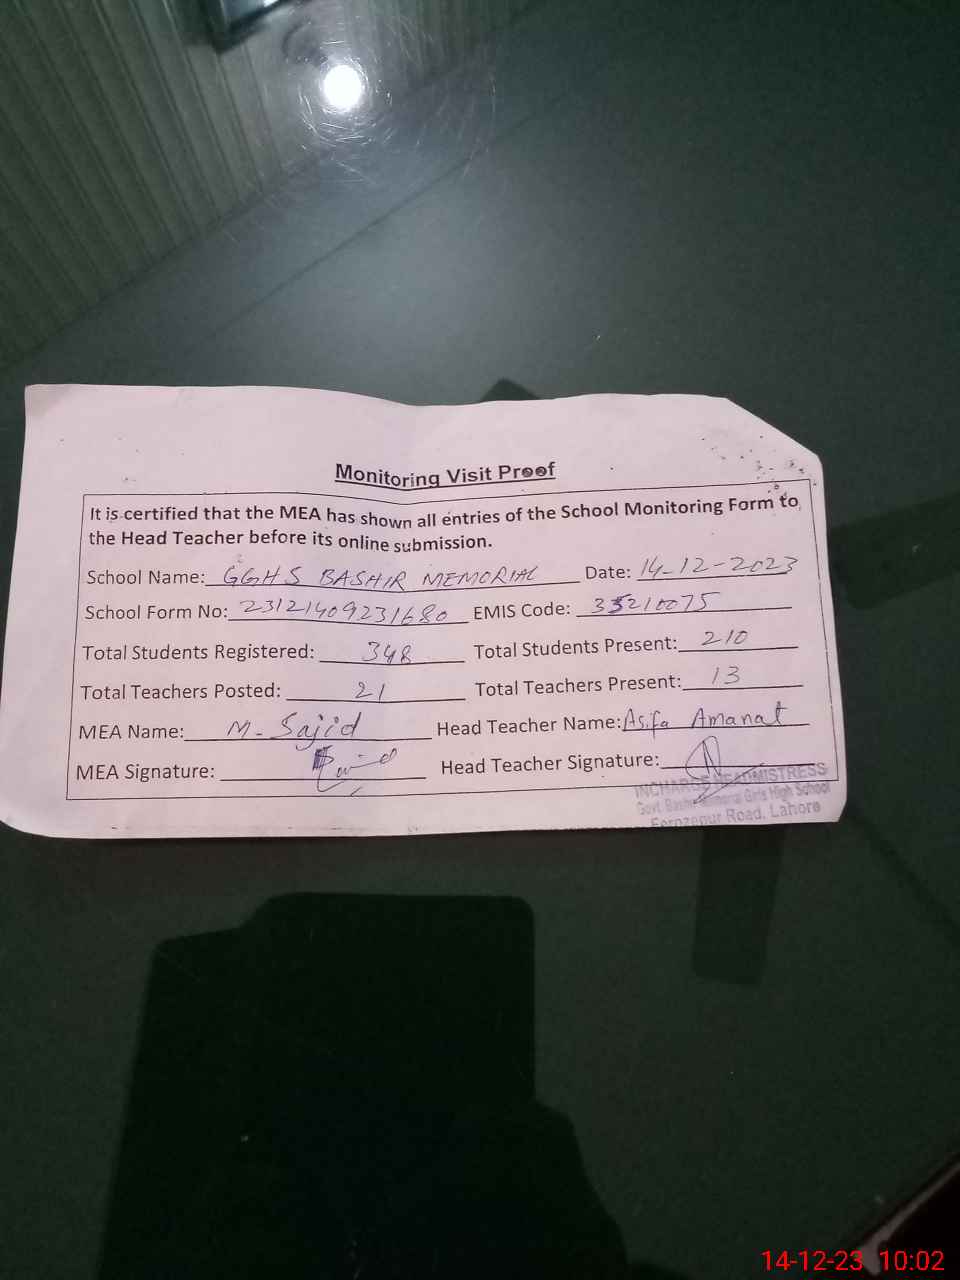 Monitoring Visit Proof
It is certified that the MEA has shown all entries of the School Monitoring Form to
the Head Teacher before its online submission.
School Name: GGHS BASHIR MEMORIAL Date: 14-12-2023
School Form No: 23121409231680 EMIS Code: 35210075
Total Students Registered: 348 Total Students Present: 210
Total Teachers Posted: 21 Total Teachers Present: 13
MEA Name: M. Sajid Head Teacher Name: Asifa Amanat
MEA Signature: Head Teacher Signature:
INCHARGE HEADMISTRESS
Govt. Bashir Memorial Girls High School
Ferozepur Road, Lahore
14-12-23 10:02